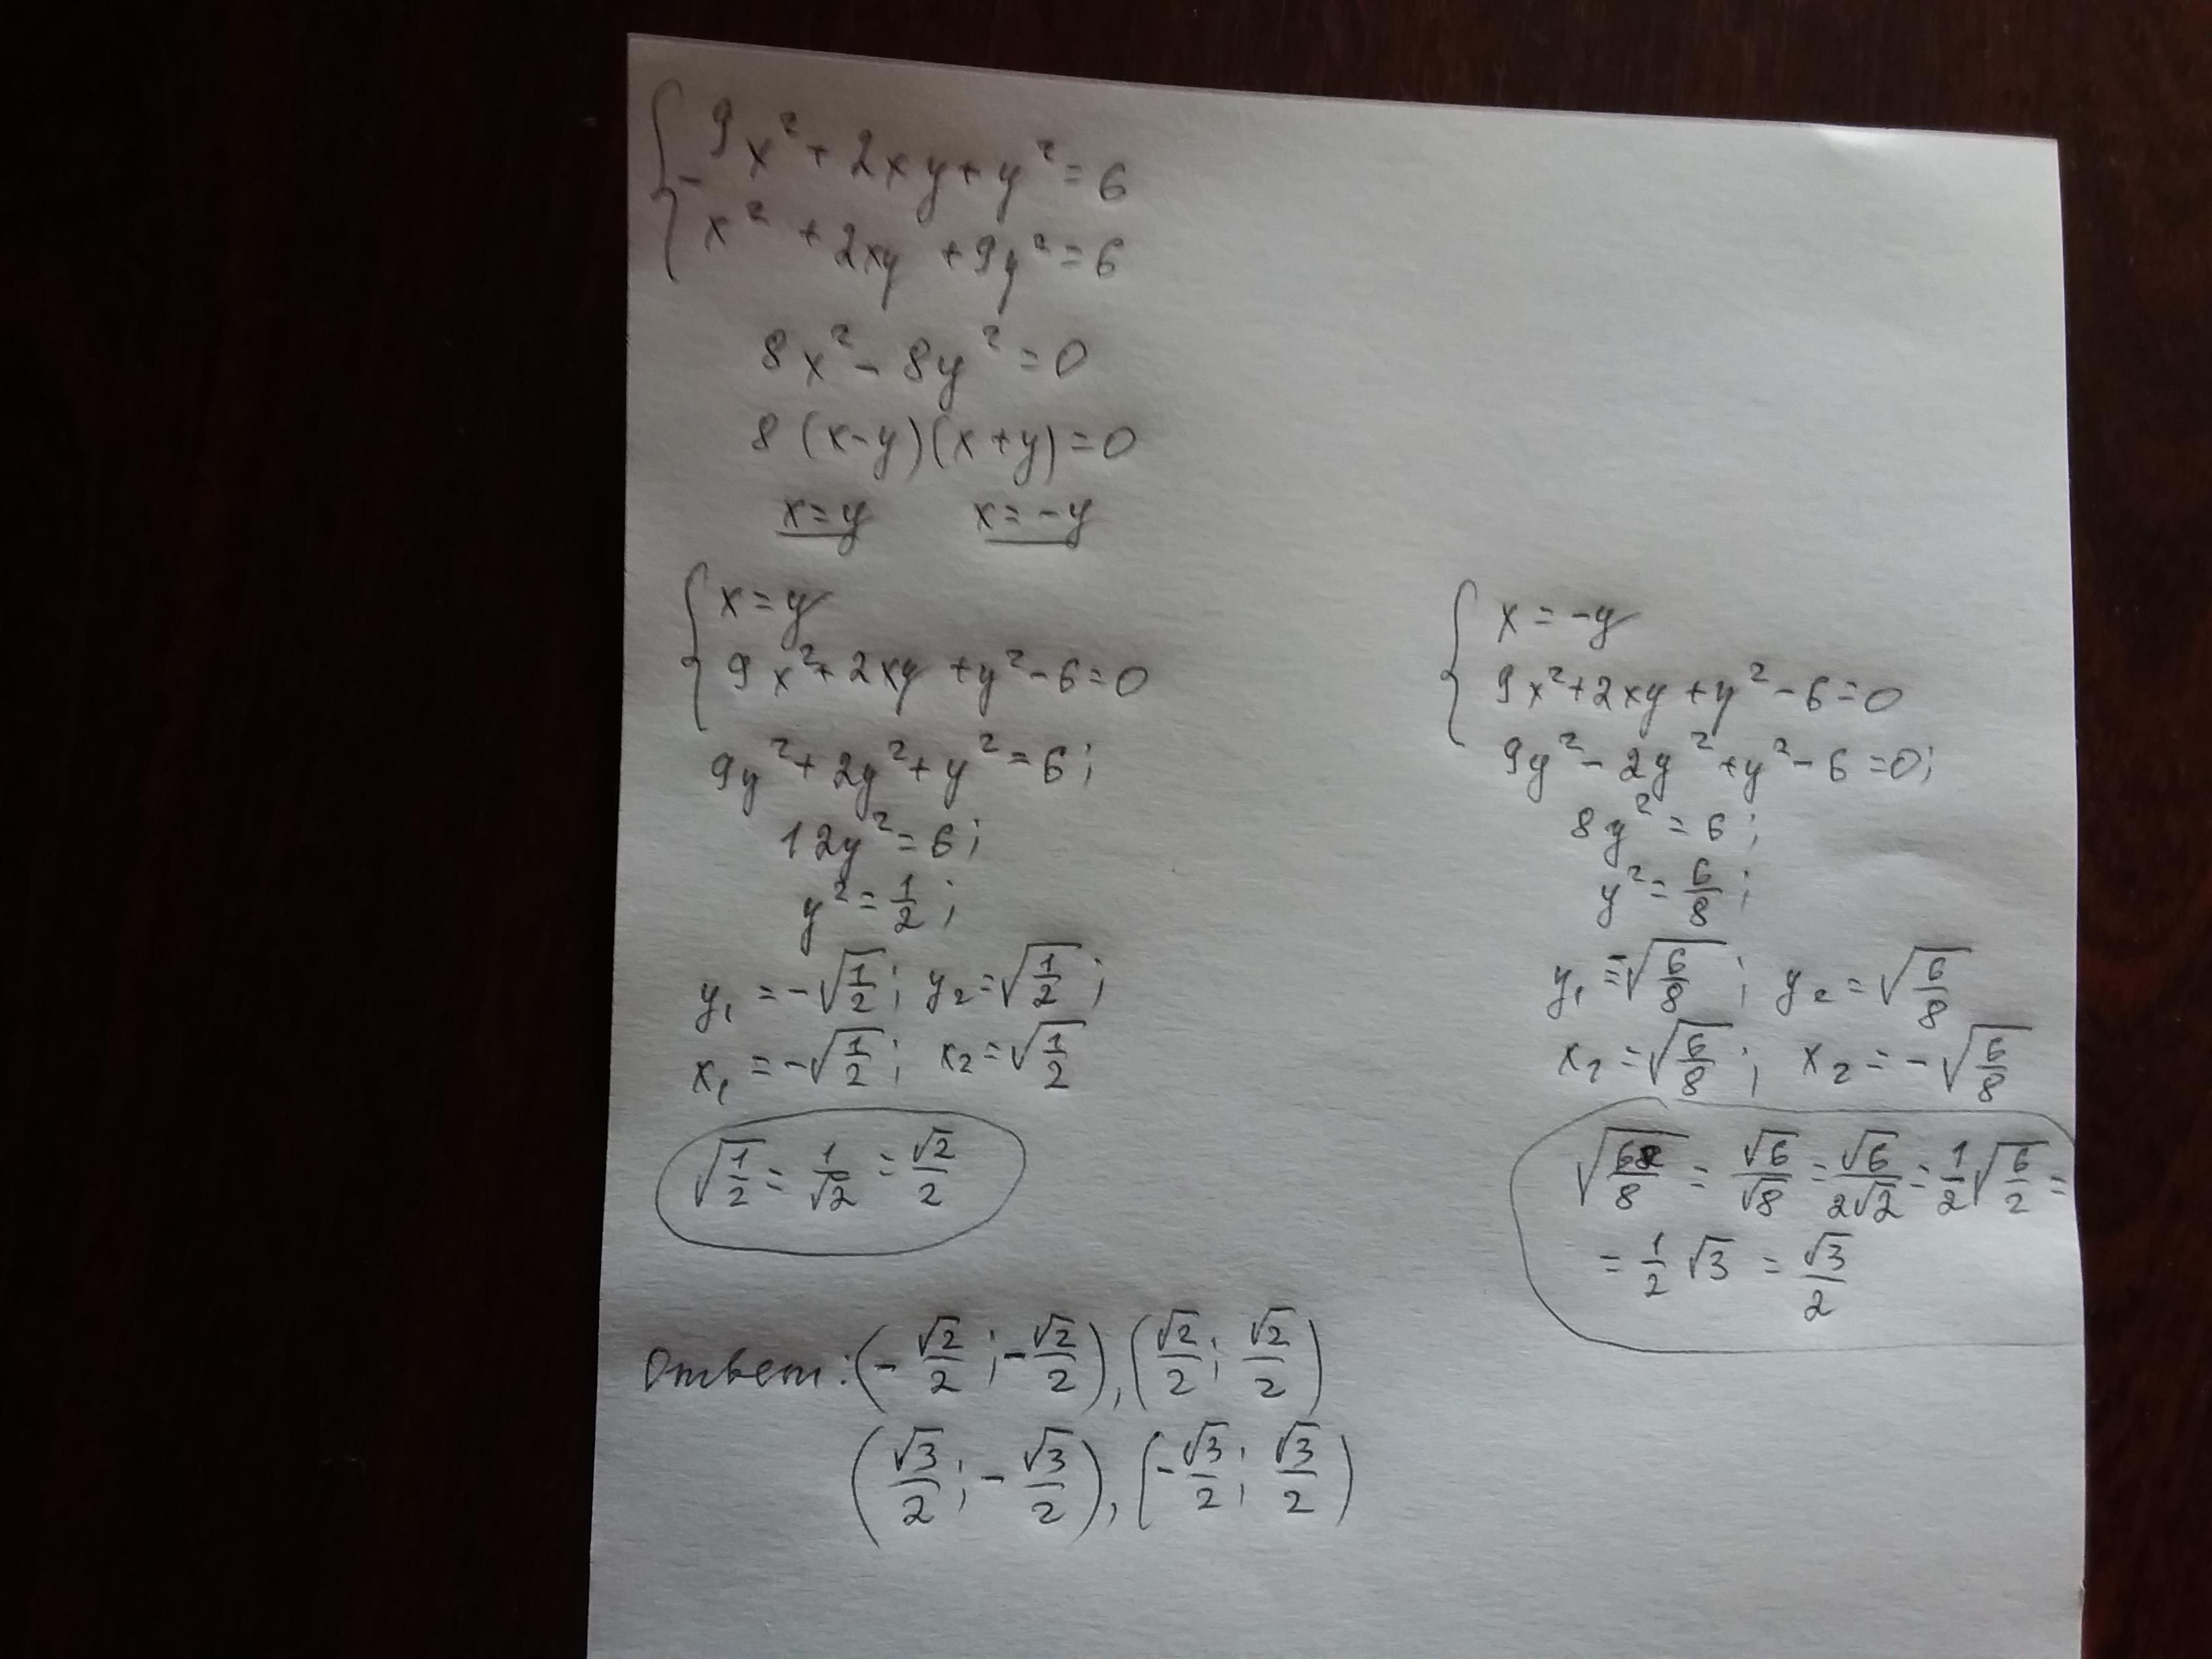 9x² + 2xy + y² = 6
-
x² + 2xy + 9y² = 6
8x² - 8y² = 0
8(x-y)(x+y) = 0
x = y x = -y
{ x = y
9x² + 2xy + y² - 6 = 0
9y² + 2y² + y² = 6;
12y² = 6;
y² = 1/2;
y₁ = -√(1/2); y₂ = √(1/2);
x₁ = -√(1/2); x₂ = √(1/2)
√(1/2) = 1/√2 = √2/2
{ x = -y
9x² + 2xy + y² - 6 = 0
9y² - 2y² + y² - 6 = 0;
8y² = 6;
y² = 6/8;
y₁ = -√(6/8); y₂ = √(6/8)
x₁ = √(6/8); x₂ = -√(6/8)
√(6/8) = √6/√8 = √6/2√2 = 1/2 √(6/2) =
= 1/2 √3 = √3/2
Ответ: (-√2/2; -√2/2), (√2/2; √2/2)
(√3/2; -√3/2), (-√3/2; √3/2)